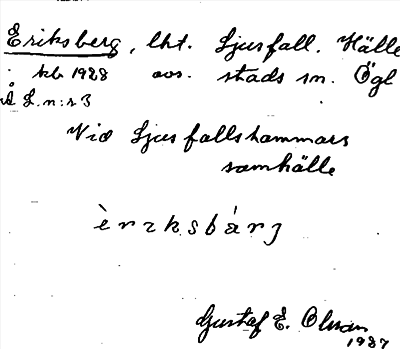 Eriksberg, lht. Ljusfall. Hälle
kb 1928 avs. stads sn. Ögl
Å L.n:r 3
Vid Ljusfallshammars
samhälle
èrɩksbárj
Gustaf E. Olsson
1927